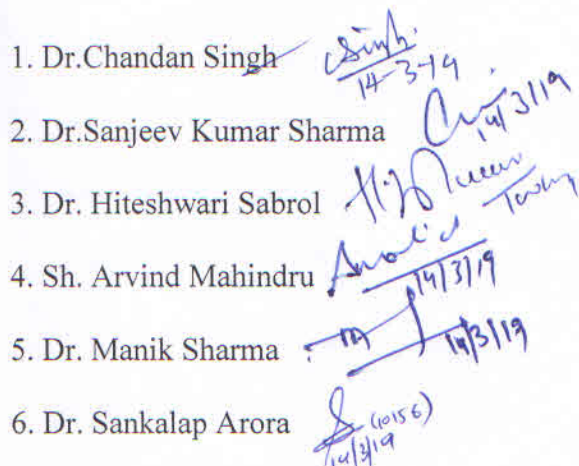 1. Dr.Chandan Singh Singh. 14-3-19
2. Dr.Sanjeev Kumar Sharma 14/3/19
3. Dr. Hiteshwari Sabrol
4. Sh. Arvind Mahindru 14/3/19
5. Dr. Manik Sharma 14/3/19
6. Dr. Sankalap Arora (10156) 14/3/19